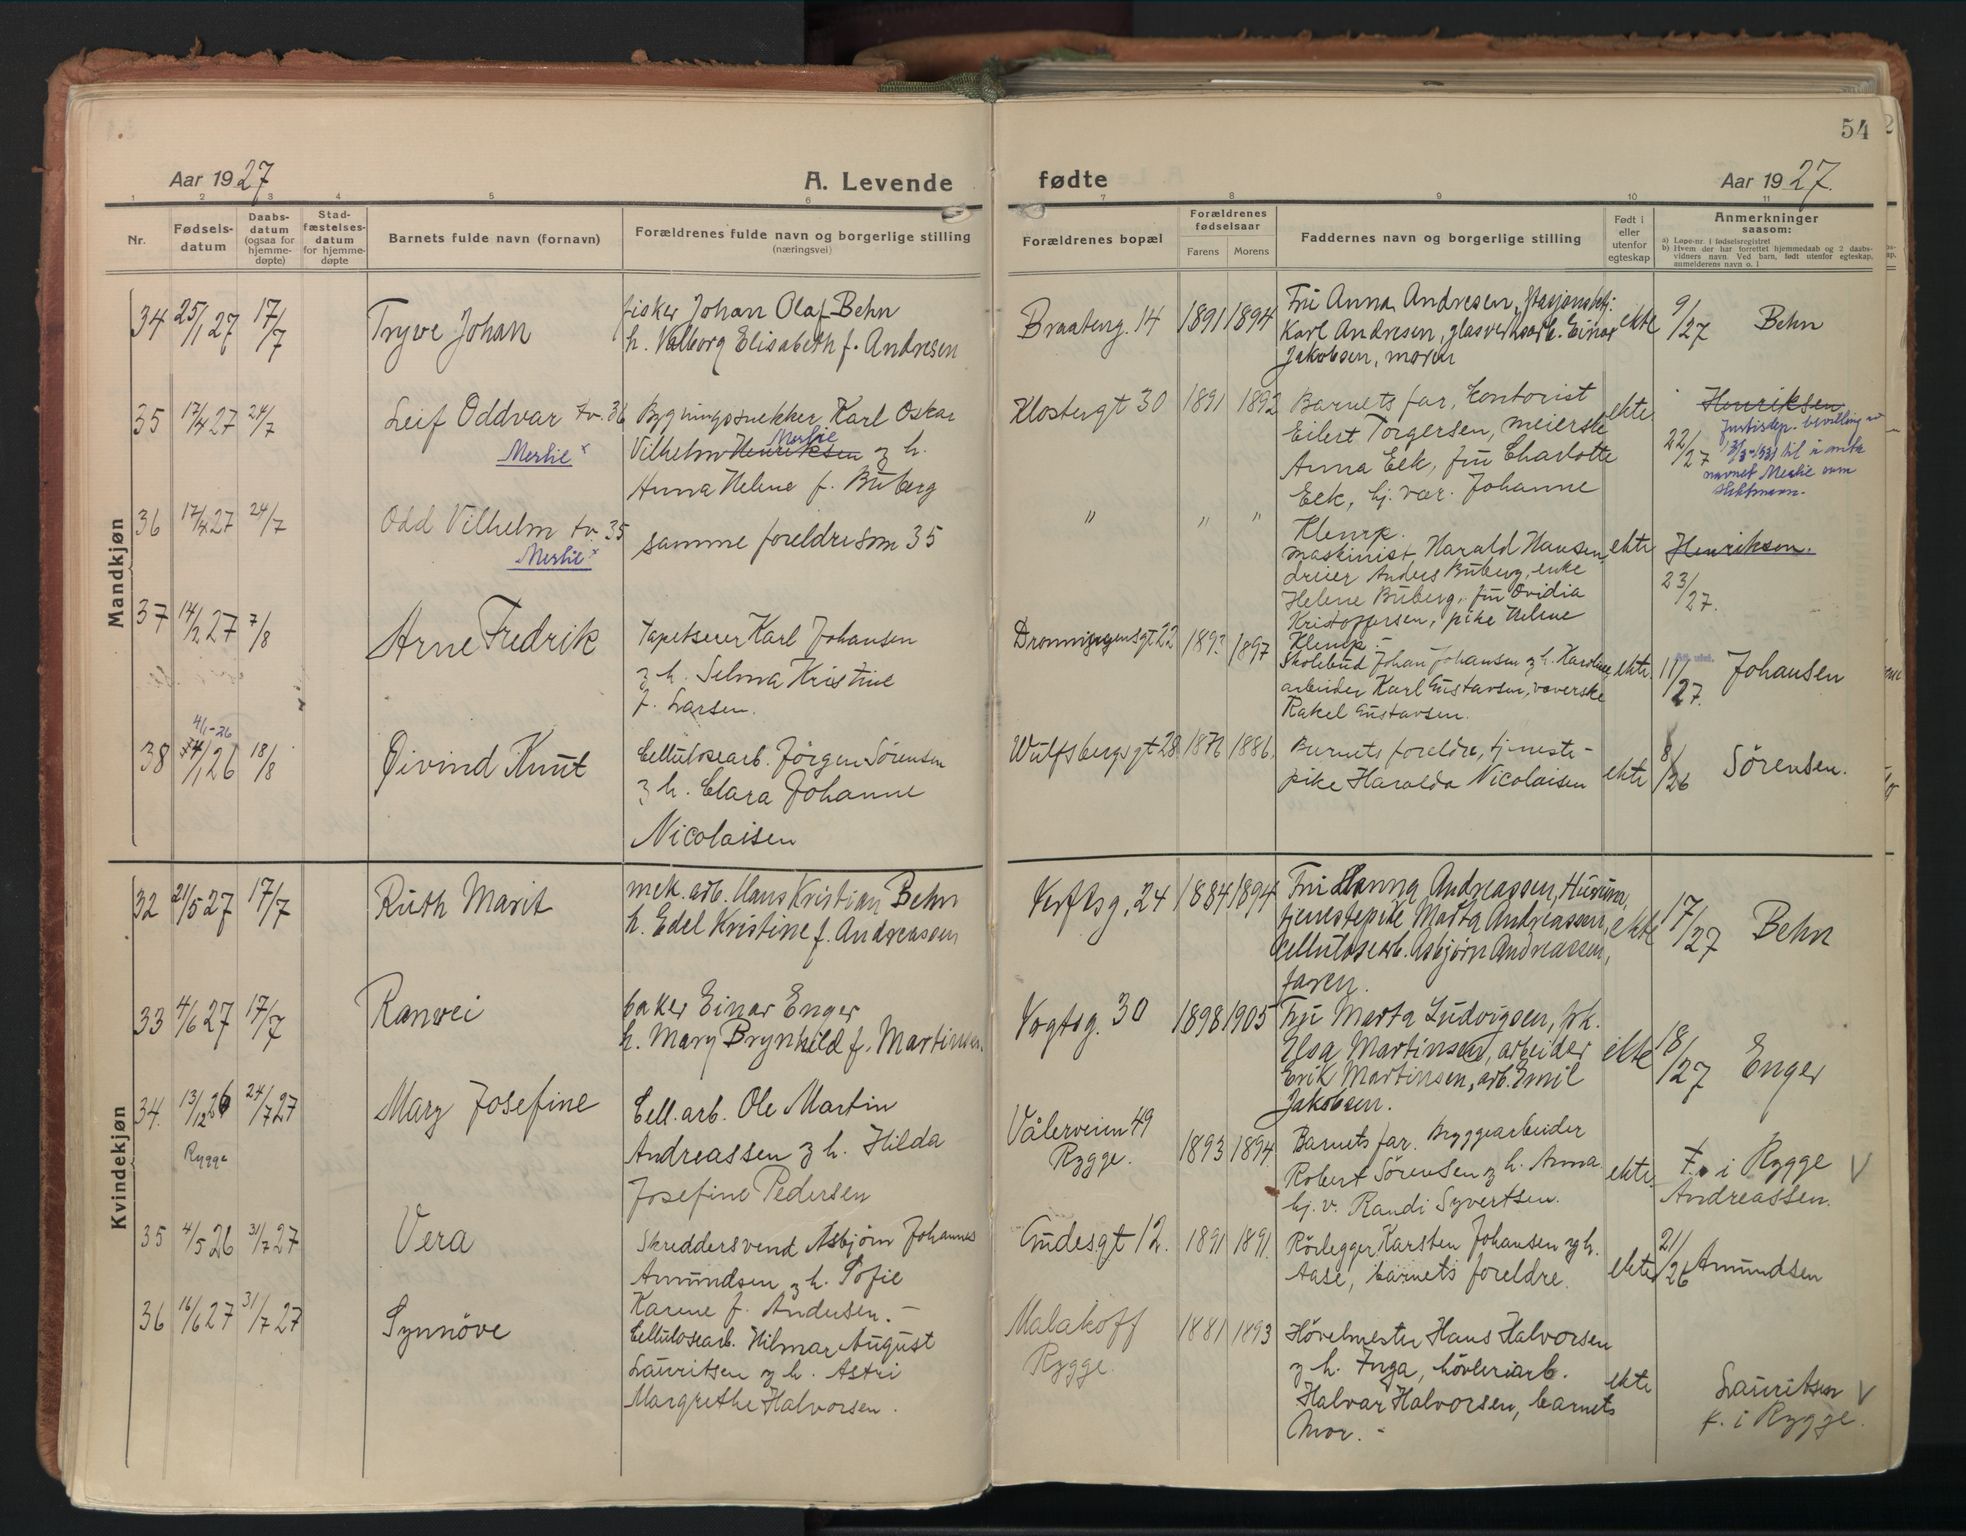 54
Aar 1927 A. Levende
fødte Aar 1927.
1 2 3 4 5 6
7 8 9 10 11
Nr. Fødsels-datum Daabs-datum (ogsaa for hjemme-døpte) Stad-fæstelses-datum for hjemme-døpte Barnets fulde navn (fornavn) Forældrenes fulde navn og borgerlige stilling (næringsvei)
Forældrenes bopæl Forældrenes fødselsaar Farens Morens Faddernes navn og borgerlige stilling Født i eller utenfor egteskap Anmerkninger saasom:
a) Løpe-nr. i fødselsregistret
b) Hvem der har forrettet hjemmedaab og 2 daabs-vidners navn. Ved barn, født utenfor egteskap, anmelderens navn o. l.
Mandkjøn
34 25/1 27 17/7 Tryve Johan
fisker Johan Olaf Behn
h. Valborg Elisabeth f. Andresen
Braateng. 14 1891 1894
Fru Anna Andresen,
Karl Andresen, glasverksarb. Einar
Jakobsen, moren
ekte 9/27 Behn
35 17/4 27 24/7 Leif Oddvar tv. 36
Merlie x
Bygningssnekker Karl Oskar
Merlie
Vilhelm Henriksen og h.
Anna Helene f. Buberg
Klostergt 30 1891 1892
Barnets far, kontorist
Eilert Torgersen, meierske
Anna Eek, fru Charlotte
Eek, hj. vær. Johanne
Klemp.
ekte Henriksen
22/27 Justisdep. bevilling
til å anta
navnet Merlie som
slektsnavn.
36 17/4 27 24/7 Odd Vilhelm tv. 35
Merlie x
samme foreldre som 35
" " "
maskinist Harald Hansen,
dreier Anders Buberg, enke
Helene Buberg, fru Ovidia
Kristoffersen, pike Helene
Klemp.-
ekte Henriksen.
23/27.
37 14/2 27 7/8 Arne Fredrik
Tapetserer Karl Johansen
og h. Selma Kristine
f. Larsen.
Dronningensgt 22 1893 1897
Skolebud Johan Johansen og h. Karoline
arbeider Karl Gustavsen, væverske
Rakel Gustavsen.
ekte 11/27. Johansen
4/1-26
38 4/1 26 18/8 Øivind Knut
Cellulosearb. Jörgen Sörensen
og h. Clara Johanne
Nicolaisen
Wulfsbergsgt 28 1876 1886.
Barnets foreldre, tjeneste-
pike Haralda Nicolaisen
ekte 8/26 Sørensen.
Kvindekjøn
32 21/5 27 17/7 Ruth Marit
mek. arb. Hans Kristian Behn
h. Edel Kristine f. Andreassen
Verftsg. 24 1884 1894
Fru Hanna Andreassen, Hurum,
tjenestepike Marta Andreassen,
cellulosearb. Asbjørn Andreassen,
faren.
ekte 17/27 Behn
33 4/6 27 17/7 Ranvei
baker Einar Enger
h. Mary Brynhild f. Martinsen.
Vogtsg. 30 1898 1905
Fru Marta Ludvigsen, frk.
Elsa Martinsen, arbeider
Erik Martinsen, arb. Emil
Jakobsen.
ekte 18/27 Enger
34. 13/12 26 24/7 27 Mary Josefine
Rygge
Cell. arb. Ole Martin
Andreassen og h. Hilda
Josefine Pedersen
Vålerveien 49
Rygge. 1893 1894.
Barnets far. Bryggearbeider
Robert Sörensen og h. Anna.
hj. v. Randi Syvertsen.
ekte. f. i Rygge V
Andreassen.
35 4/5 26 31/7 27 Vera
Skreddersvend Asbjörn Johannes
Amundsen og h. Sofie
Karene f. Andersen.-
Gudesgt 12. 1891 1891.
Rörlegger Karsten Johansen og h.
Aase, barnets foreldre.
ekte 21/26 Amundsen
36 16/6 27 31/7 27 Synnöve
Cellulosearb. Hilmar August
Lauritsen og h. Astri
Margrethe Halvorsen.
Malakoff
Rygge. 1881 1893
Hövelmester Hans Halvorsen
og h. Inga, høvleriarb.
Halvar Halvorsen, barnets
mor.-
ekte Lauritsen V
f. i Rygge.